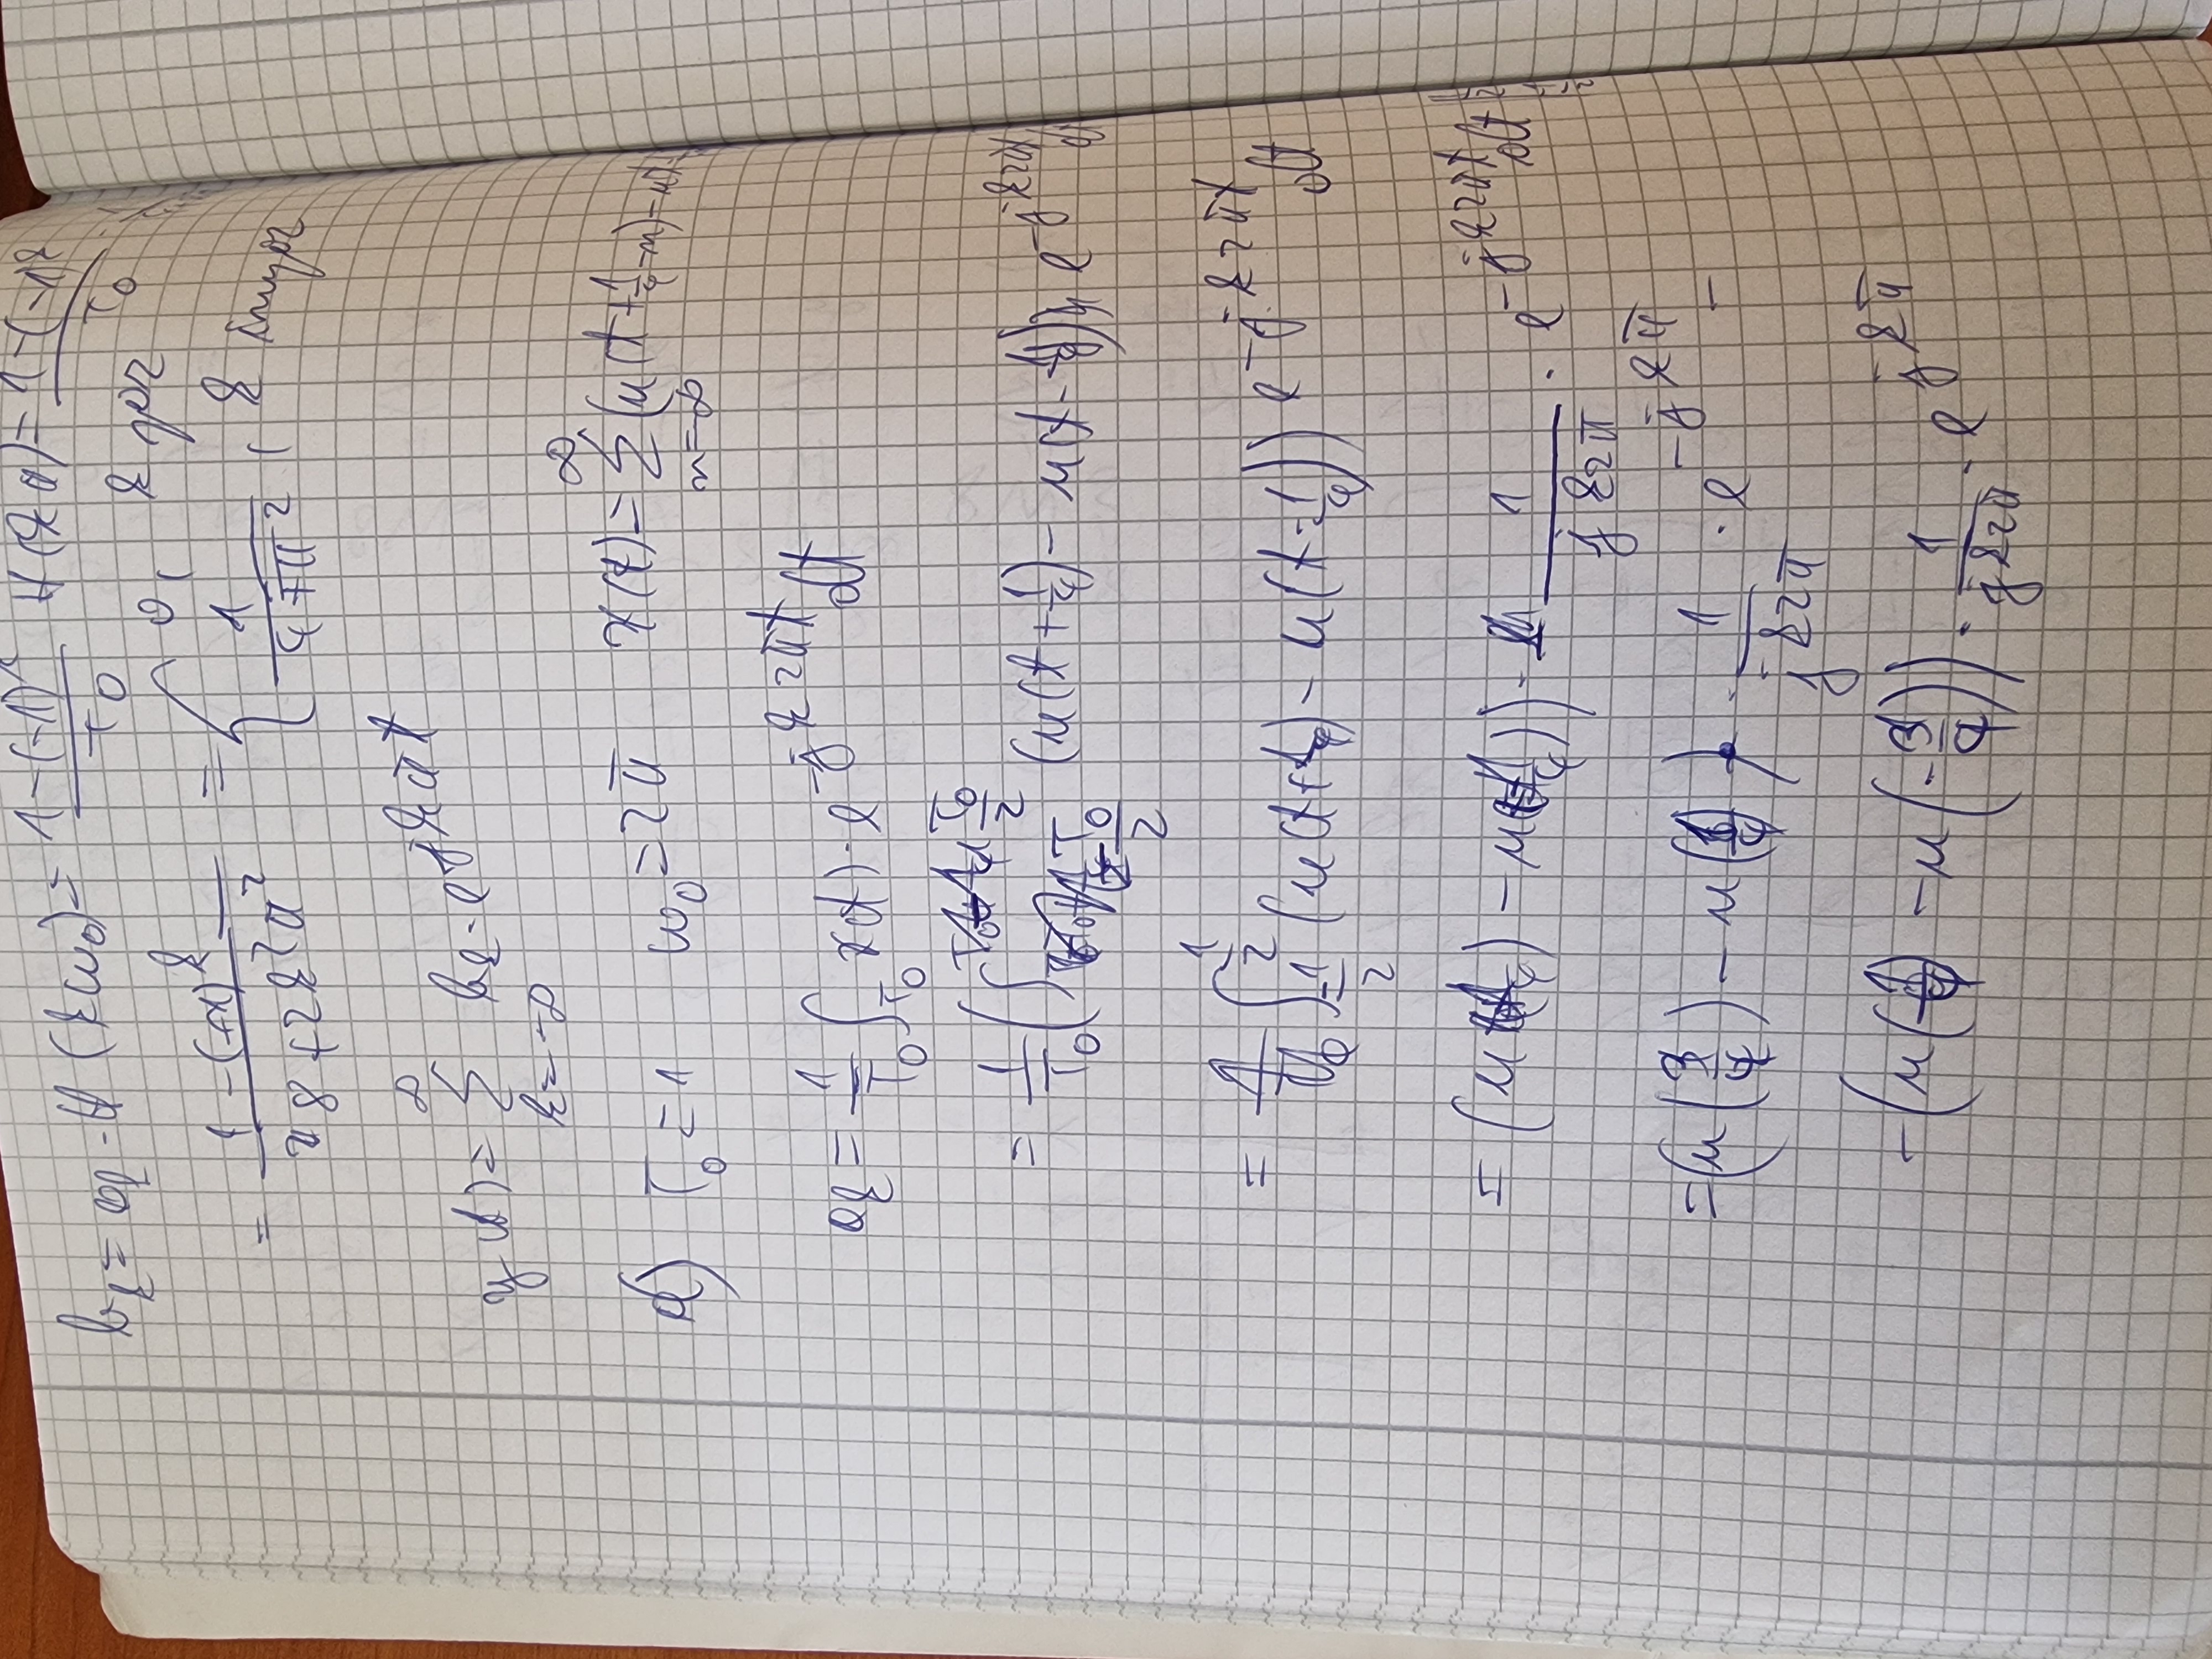 b_k = a_k · H(kω_0) = (1-(-1)^k)/T_0 H(kπ) = (1-(-1)^k)/T_0 ·
= (1-(-1)^k)/(8+2k²π²) = { 0, k par
1/(4+π²), k impar
y(t) = Σ_{k=-∞}^{∞} b_k · e^{jkπt}
d) T_0 = 1 ω_0 = 2π x(t) = Σ_{n=-∞}^{∞} (u(t+1/4-n) - u(t-
a_k = 1/T_0 ∫_{T_0} x(t) · e^{-jk2πt} dt
= 1/T_0 (∫_{-T_0/2}^{T_0/2} (u(t+1/4) - u(t-1/4)) e^{-jk2πt} dt
= ∫_{-1/2}^{1/2} (u(t+1/4) - u(t-1/4)) e^{-jk2πt} dt
= (u(t+1/4) - u(t-1/4)) · 1/(jk2π) · e^{-jk2πt} dt |_{-1/2}^{1/2}
= (u(3/4) - u(1/4)) · 1/(jk2π) · e^{-jkπ} -
- (u(-1/4) - u(-3/4)) · 1/(jk2π) · e^{jkπ}